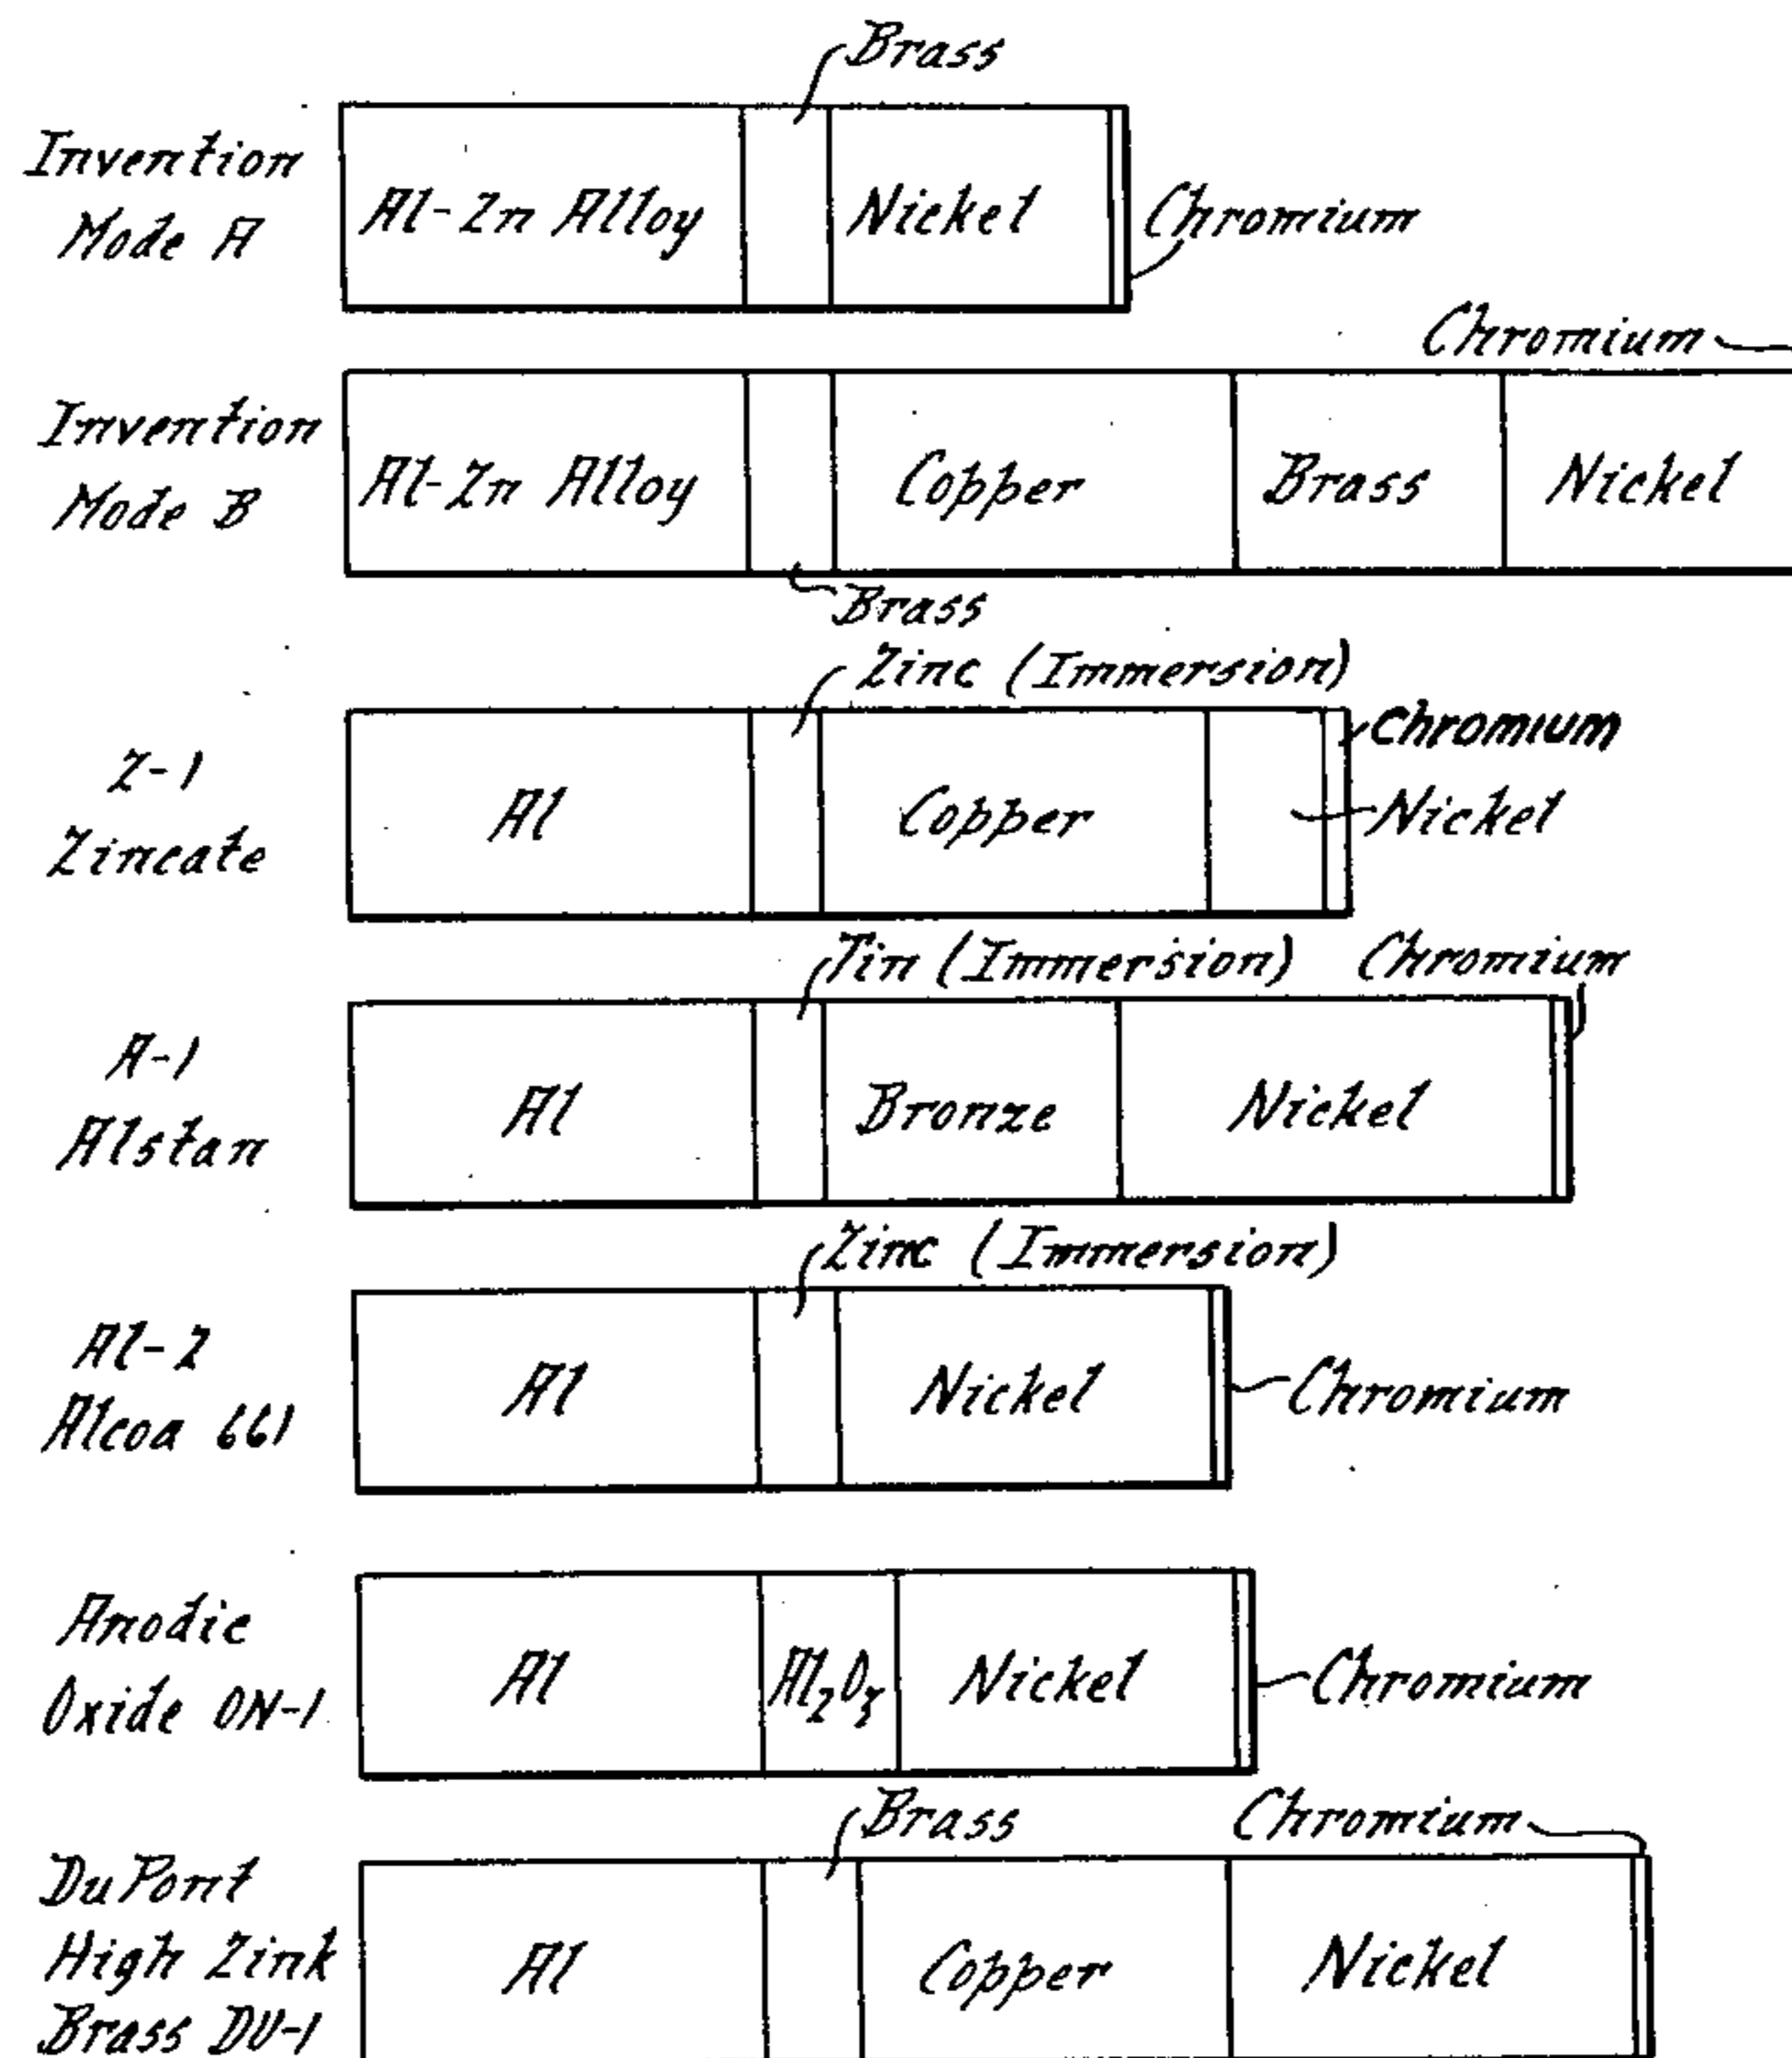 Brass
Invention
Mode A
Al-Zn Alloy
Nickel
Chromium
Chromium
Invention
Mode B
Al-Zn Alloy
Copper
Brass
Nickel
Brass
Zinc (Immersion)
Chromium
Z-1
Zincate
Al
Copper
Nickel
Tin (Immersion)
Chromium
A-1
Alstan
Al
Bronze
Nickel
Zinc (Immersion)
Al-2
Alcoa 661
Al
Nickel
Chromium
Anodic
Oxide ON-1
Al
Al₂O₃
Nickel
Chromium
Brass
Chromium
DuPont
High Zink
Brass DU-1
Al
Copper
Nickel